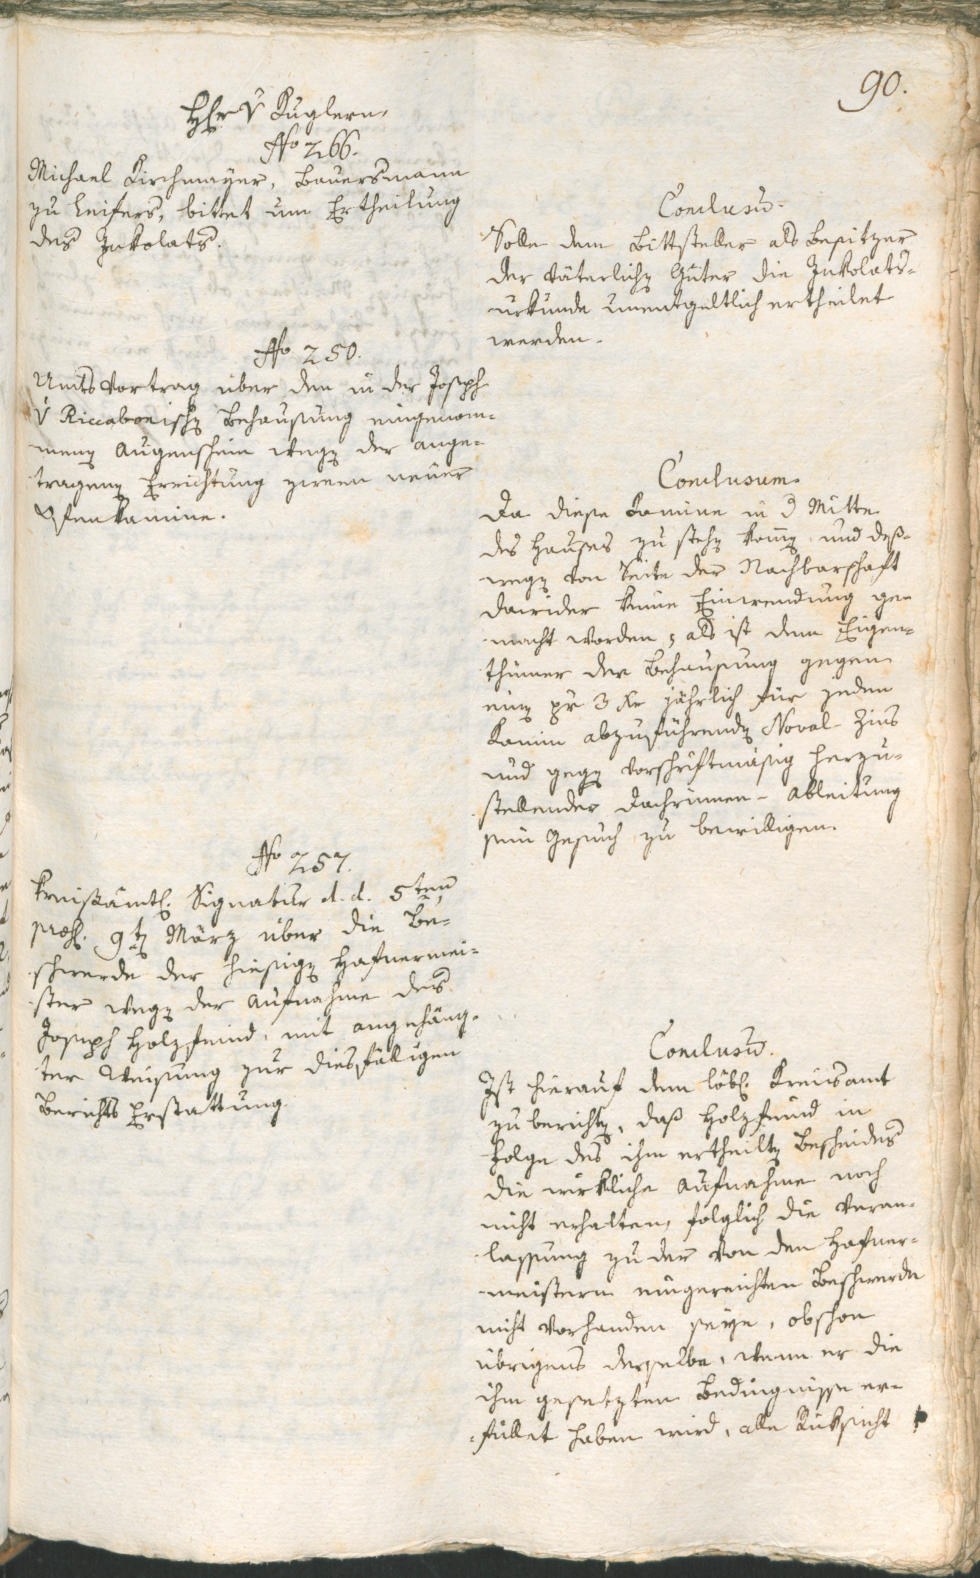 90.
H&#x304;r v Kuglern.
No 266.
Michael Kirchmaÿer, Bauersmann
zu Leifers, bittet um Ertheilung
des Inkolats.
Conclusū.
Solle dem Bittsteller als Besitzer
der väterlichē Güter die Inkolats-
urkunde unentgeltlich ertheilet
werden.
No 250.
Amts Vortrag über den in der Joseph
v Riccabonischē Behausung eingenom-
menē Augenschein wegē der ange-
tragenē Errichtung zween neuer
Ofenkamine.
Conclusum.
Da diese Kamine in d Mitte
des Hauses zu stehē kom̄ē und deß-
wegē von Seite der Nachbarschaft
dawider keine Einwendung ge-
macht worden, als ist dem Eigen-
thümer der Behausung gegen
einē pr 3 Kr jährlich für jeden
Kamin abzuführendē Noval-Zins
und gegē vorschriftmäßig herzu-
stellender Dachrinnen-Ableitung
sein Gesuch zu bewilligen.
No 257.
Kreisämtl. Signatur d. d. 5ten
præs. 9tē März über die Be-
schwerde der hiesigē Hafnermei-
ster wegē der Aufnahme des
Joseph Holzfeind, mit angehäng-
ter Weisung zur diesfäligen
Berichts Erstattung.
Conclusū.
Ist hierauf dem löbl. Kreisamt
zu berichtē, daß Holzfeind in
Folge des ihm ertheiltē Bescheides
die wirkliche Aufnahme noch
nicht erhalten, folglich die Veran-
lassung zu der von den Hafner-
meistern eingereichten Beschwerde
nicht vorhanden seÿe, obschon
übrigens derselbe, wenn er die
ihm gesetzten Bedingnisse er-
füllet haben wird, alle Rüksicht